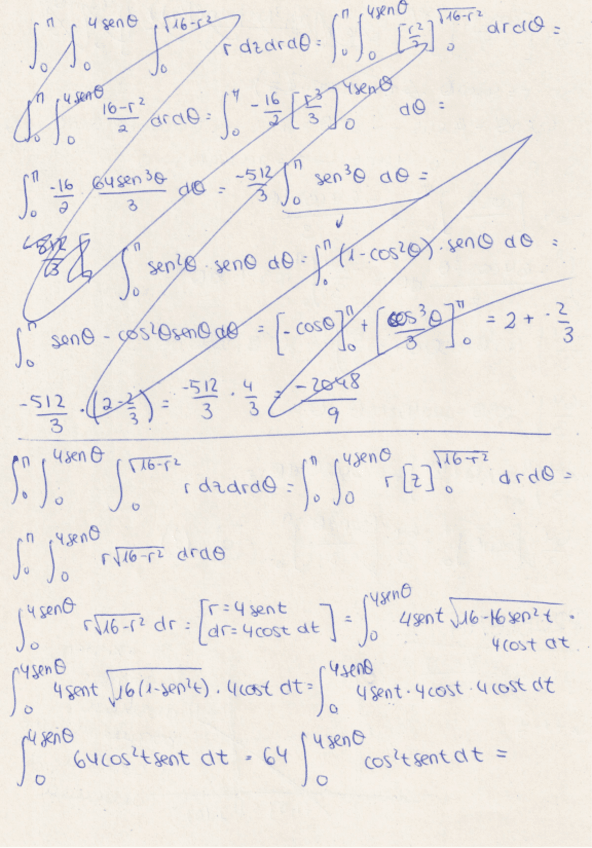 ∫₀^π ∫₀^{4senθ} ∫₀^{√(16-r²)} r dz dr dθ = ∫₀^π ∫₀^{4senθ} [r²/2]₀^{√(16-r²)} dr dθ =
∫₀^π ∫₀^{4senθ} (16-r²)/2 dr dθ = ∫₀^π -16/2 [r³/3]₀^{4senθ} dθ =
∫₀^π -16/2 · 64sen³θ/3 dθ = -512/3 ∫₀^π sen³θ dθ =
∫₀^π sen²θ · senθ dθ = ∫₀^π (1-cos²θ) · senθ dθ =
∫₀^π senθ - cos²θsenθ dθ = [-cosθ]₀^π + [cos³θ/3]₀^π = 2 + -2/3
-512/3 · (2-2/3) = -512/3 · 4/3 = -2048/9
∫₀^π ∫₀^{4senθ} ∫₀^{√(16-r²)} r dz dr dθ = ∫₀^π ∫₀^{4senθ} r [z]₀^{√(16-r²)} dr dθ =
∫₀^π ∫₀^{4senθ} r√(16-r²) dr dθ
∫₀^{4senθ} r√(16-r²) dr = [r=4sent dr=4cost dt] = ∫₀^{4senθ} 4sent √(16-16sen²t) ·
4cost dt
∫₀^{4senθ} 4sent √(16(1-sen²t)) · 4cost dt = ∫₀^{4senθ} 4sent · 4cost · 4cost dt
∫₀^{4senθ} 64cos²tsent dt = 64 ∫₀^{4senθ} cos²tsent dt =